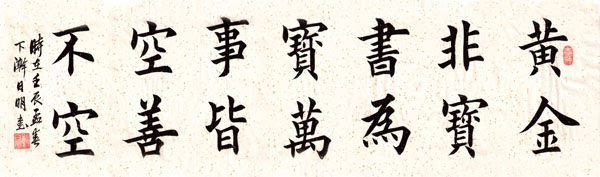 黄金
非寶
書為
寶萬
事皆
空善
不空
時在壬辰孟春
下澣日明